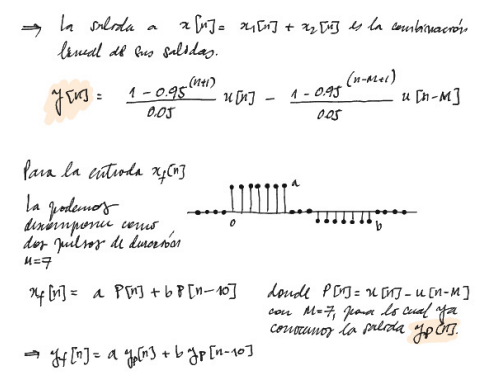 ⇒ La salida a x[n] = x₁[n] + x₂[n] es la combinación
lineal de sus salidas.
y[n] = (1 - 0.95^(n+1))/0.05 u[n] - (1 - 0.95^(n-M+1))/0.05 u[n-M]
Para la entrada x_f[n]
La podemos
descomponer como
dos pulsos de duración
M=7
a
0
b
x_f[n] = a P[n] + b P[n-10]
donde P[n] = u[n] - u[n-M]
con M=7, para lo cual ya
conocemos la salida y_p[n].
⇒ y_f[n] = a y_p[n] + b y_p[n-10]